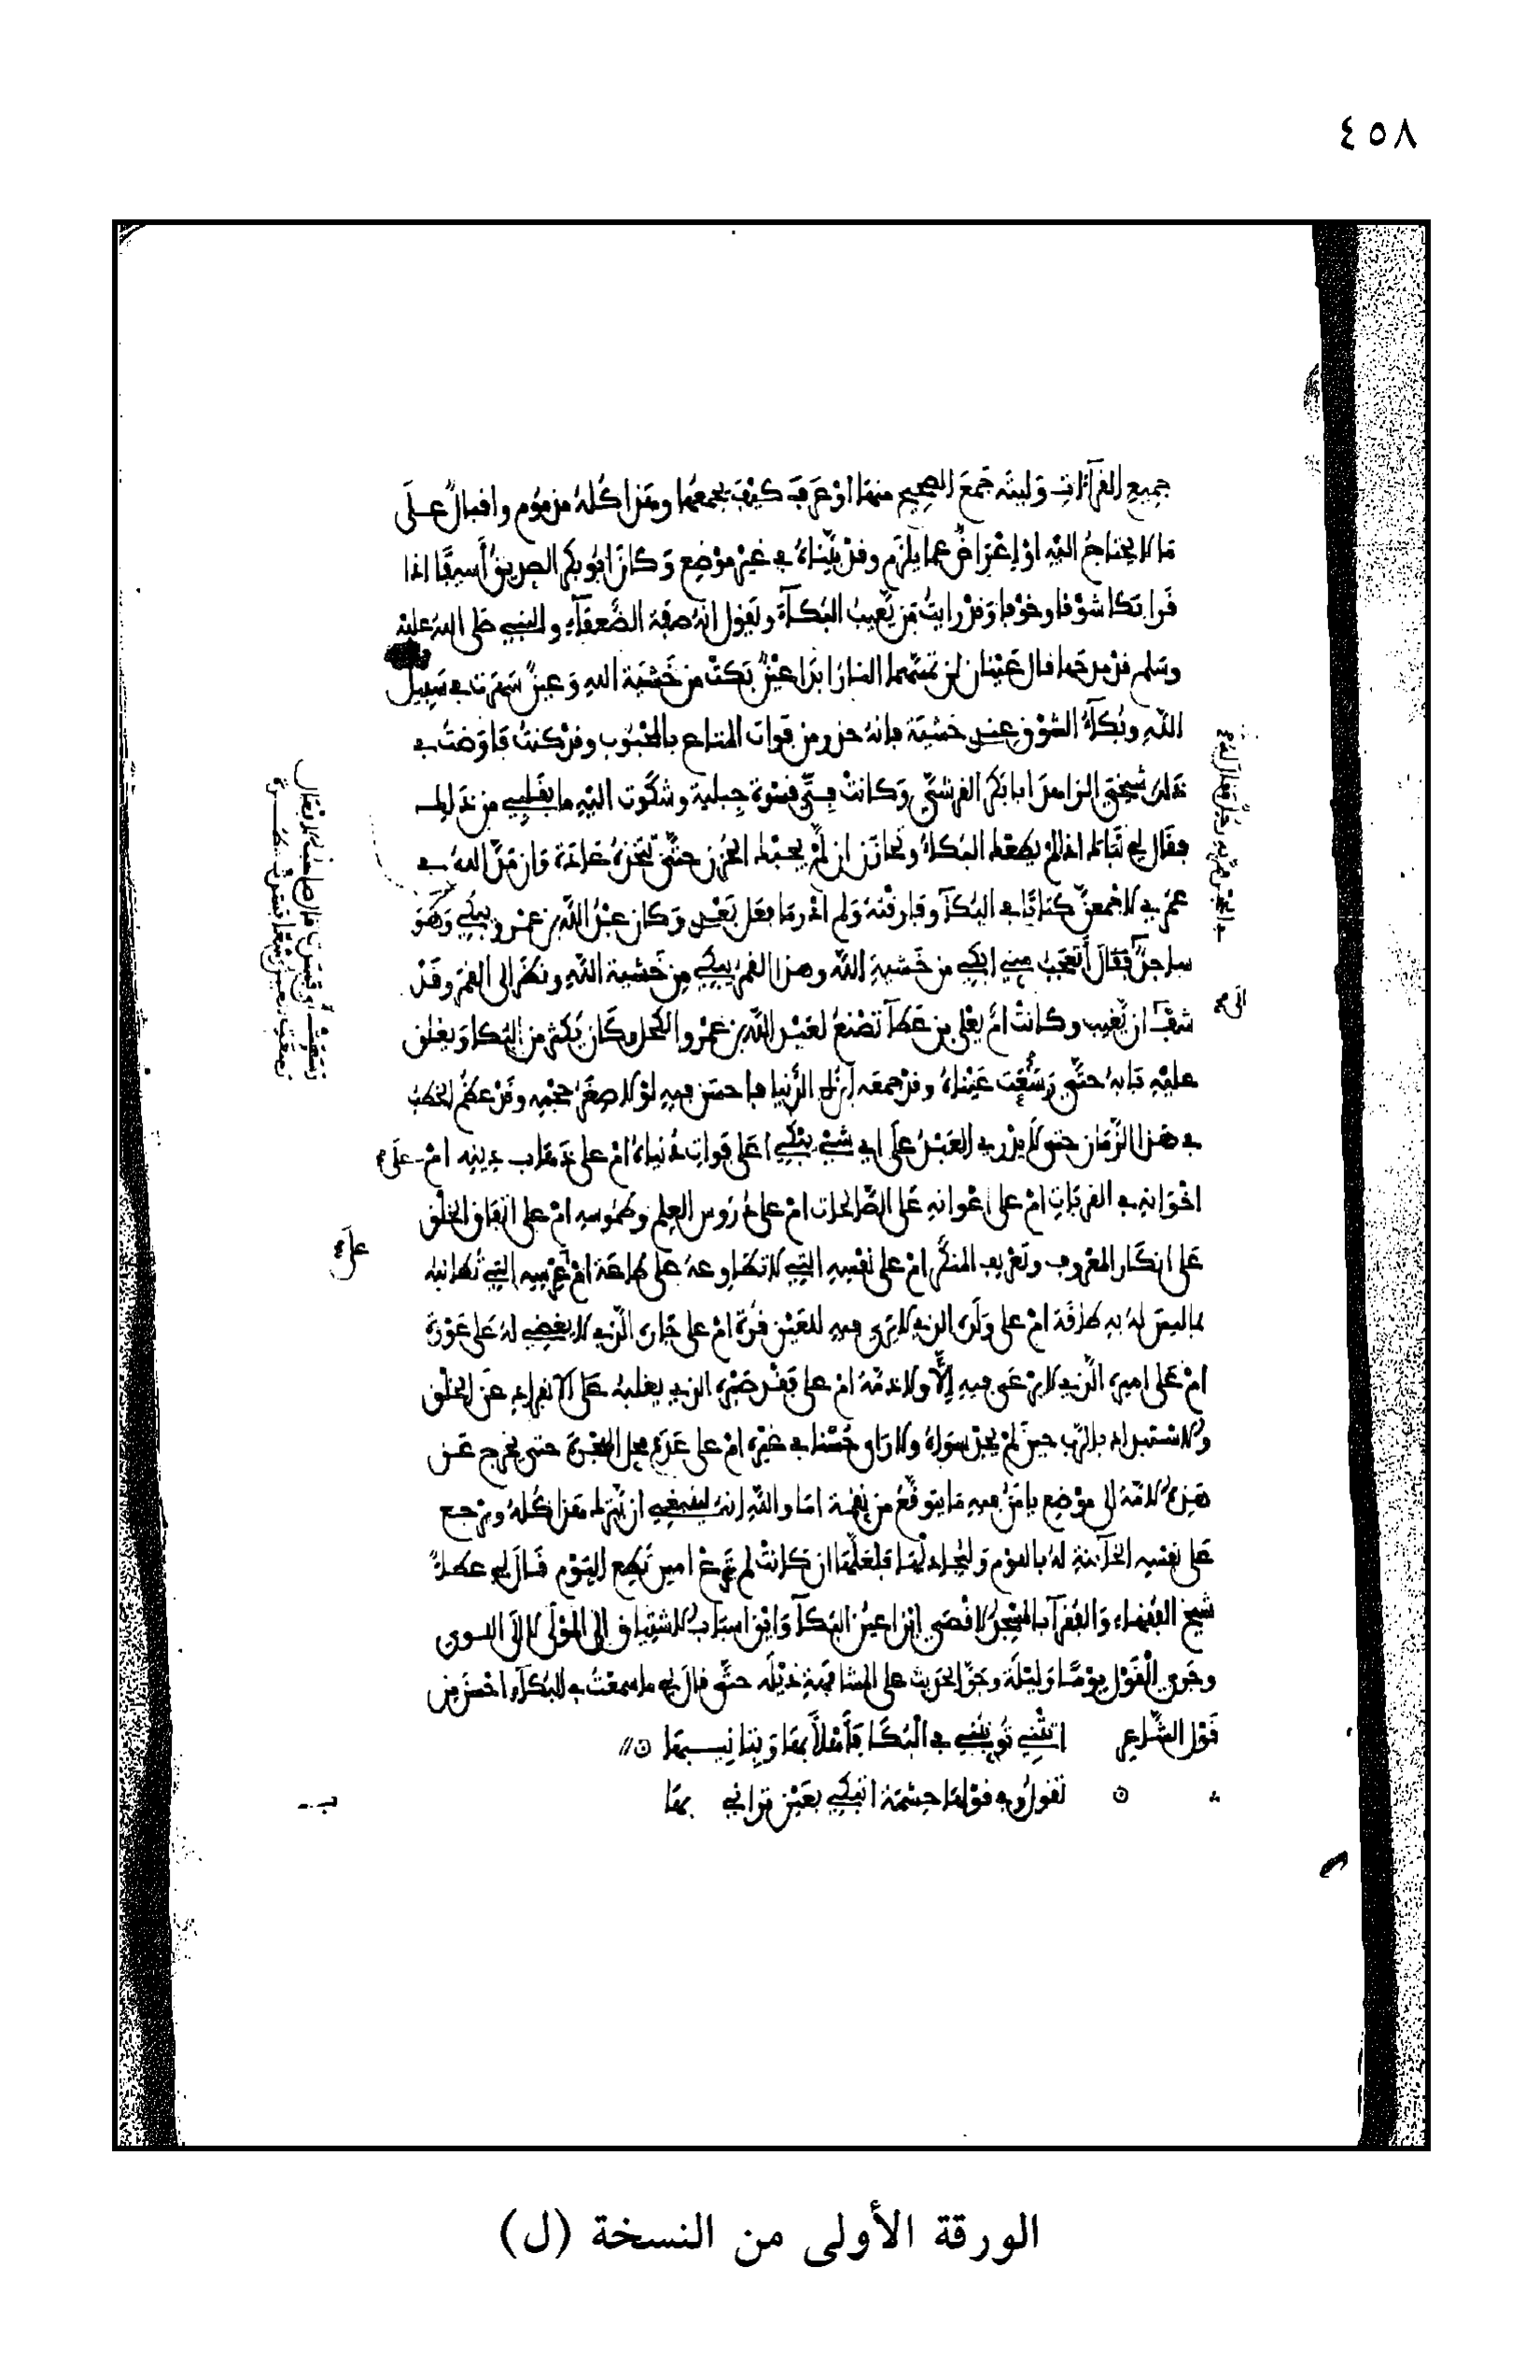 ٤٥٨
جميع القراءات وليته جمع الصحيح منها او عرف كيف يجمعها وهذا كله مذموم واقبال على
ما لا يحتاج اليه او اعراض عما يلزم وقد بيناه في غير موضع وكان ابو بكر الصديق أسيفا اذا
قرا بكا شوقا وخوفا وقد رايت من يعيب البكاء ويقول انه صفة الضعفاء والنبي صلى الله عليه
وسلم قد مدحها فقال عينان لن تمسهما النار ابدا عين بكت من خشية الله وعين سهرت في سبيل
الله وبكاء الشوق عندي خشية فانه حذر من فوات المتاع بالمحبوب وقد كنت فاوضت في
ذلك شيخي الزاهد ابا بكر الفرشي وكانت في قسوة جبلية وشكوت اليه ما بقلبي من ذلك
فقال لي تباك اذا لم يعط البكاء وتحازن ان لم يحبك الحزن حتى تتخذه عادة وان مد الله في
عمري لاجمعن كتابا في البكا وفارقته ولم ادر ما فعل بعدي وكان عبد الله بن عمرو يبكي وهو
ساجد فقال أتعجب مني ابكي من خشية الله وهذا القمر يبكي من خشية الله ونظر الى القمر وقد
شف ان يغيب وكانت ام يعلى بن عطا تصنع لعبد الله بن عمرو الكحل وكان يكثر من البكا ويغلق
عليه بابه حتى رسعت عيناه وقد جمعه ابن ابي الدنيا فاحسن فيه لولا صغر حجمه وقد عظم الخطب
في هذا الزمان حتى لا يدري العبد على اي شيء يبكي اعلى فوات دنياه ام على ذهاب دينه ام على
اخوانه في القربات ام على اعوانه على الصالحات ام على دروس العلم وطموسه ام على اتفاق الخلق
على انكار المعروف وتعريف المنكر ام على نفسه التي لا تطاوعه على طاعة ام عرسه التي تطالبه
بما ليس له به طاقة ام على ولده الذي لا يرى فيه للعين قرة ام على جاره الذي لا يغضي له على عورة
ام على اميره الذي لا يرعى فيه إلا ولا ذمة ام على فقد صبره الذي يغلبه على الانفراد عن الخلق
والاستبداد بالرب حين لم يجد سواه ولا راى حسنا في غيره ام على عدم محل الهجرة حتى يخرج عن
هذه الامة الى موضع يامن فيه ما يتوقع من نقمة اما والله انه لينبغي ان يترك هذا كله ويرجع
على نفسه الخائنة له باللوم وليجادلها فلعلها ان كانت لم ترع امس تطع اليوم قال لي عطاء
شيخ الفقهاء والفقراء بالمسجد الاقصى اين اعين البكاء واين اسباب الاشتياق الى المولى لا الى السوى
وجرى القول يوما وليلة وجر الحديث على المشافهة ذيله حتى قال لي ما سمعت في البكاء احسن من
قول الشاعر اتتني تؤنبني في البكا فأهلا بها وبتأنيبها
تقول وفي قولها حشمة اتبكي بعين تراني بها
الورقة الأولى من النسخة (ل)